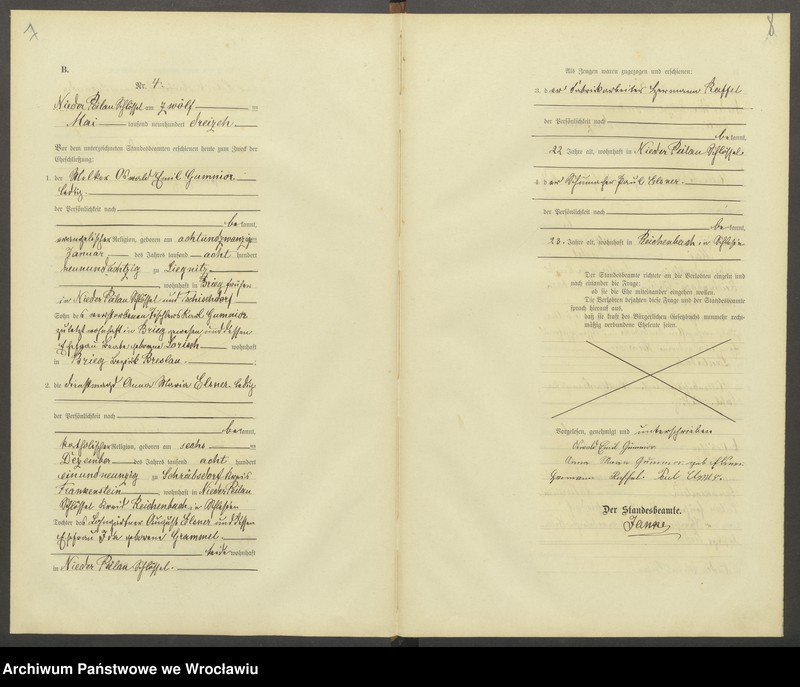 7
B.
Nr. 4.
Nieder Peilau Schlössel am zwölf ten
Mai tausend neunhundert dreizehn
Vor dem unterzeichneten Standesbeamten erschienen heute zum Zweck der
Eheschließung:
1. der Melker Oswald Emil
ledig.
der Persönlichkeit nach
be kannt,
evangelischer Religion, geboren am achtundzwanzig sten
Januar des Jahres tausend acht hundert
neunundachtzig zu Liegnitz
, wohnhaft in Brieg früher
in Nieder Peilau Schlössel und
Sohn des verstorbenen Tischlers Karl
zuletzt wohnhaft in Brieg gewesen und dessen
Ehefrau Beate geborene wohnhaft
in Brieg Bezirk Breslau.
2. die Dienstmagd Anna Maria Elsner, ledig
der Persönlichkeit nach
be kannt,
katholischer Religion, geboren am sechs ten
Dezember des Jahres tausend acht hundert
einundneunzig zu Schräbsdorf Kreis
Frankenstein, wohnhaft in Nieder Peilau
Schlössel Kreis Reichenbach in Schlesien
Tochter des August Elsner und dessen
Ehefrau Ida geborene Grammel.
beide wohnhaft
in Nieder Peilau Schlössel.
8
Als Zeugen waren zugezogen und erschienen:
3. der Fabrikarbeiter Hermann
der Persönlichkeit nach
be kannt,
22 Jahre alt, wohnhaft in Nieder Peilau Schlössel
4. der Schumacher Paul Elsner.
der Persönlichkeit nach
be kannt,
23 Jahre alt, wohnhaft in Reichenbach in Schlesien
Der Standesbeamte richtete an die Verlobten einzeln und
nach einander die Frage:
ob sie die Ehe miteinander eingehen wollen.
Die Verlobten bejahten diese Frage und der Standesbeamte
sprach hierauf aus,
daß sie kraft des Bürgerlichen Gesetzbuchs nunmehr recht-
mäßig verbundene Eheleute seien.
Vorgelesen, genehmigt und unterschrieben
Oswald Emil
Anna Maria geb. Elsner
Hermann Paul Elsner.
Der Standesbeamte.
Archiwum Państwowe we Wrocławiu